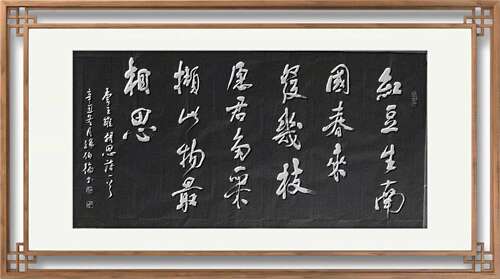 紅豆生南
國春來
發幾枝
愿君多采
擷此物最
相思
書王維相思詩一首
辛丑